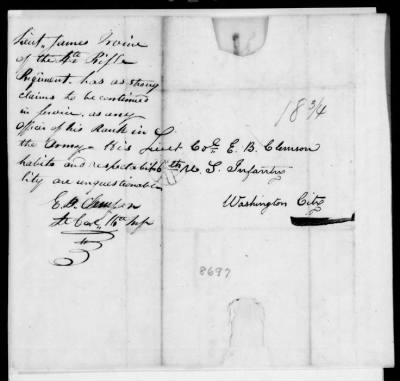 Lieut. James Irvine
of the 4th Rifle
Regiment has as strong
claims to be continued
in service, as any
officer of his Rank in
the Army. His
habits and respectabi-
lity are unquestionable
E. B. Clemson
Lt Col. 16th Inf
18 3/4
Lieut Col. E. B. Clemson
16th U. S. Infantry
Washington City
8697